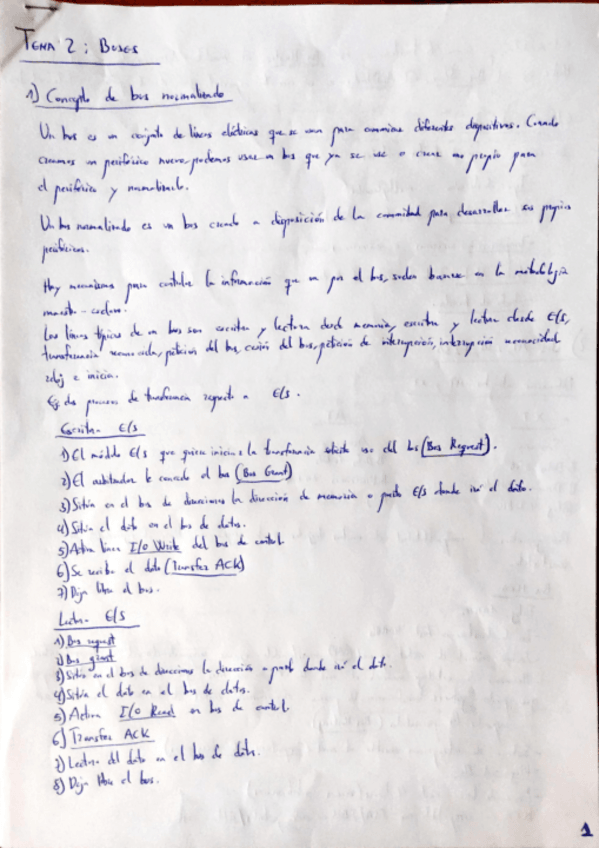 TEMA 2: BUSES
1) Concepto de bus normalizado
Un bus es un conjunto de líneas eléctricas que se usan para comunicar diferentes dispositivos. Cuando
creamos un periférico nuevo podemos usar un bus que ya se use o crear uno propio para
el periférico y normalizarlo.
Un bus normalizado es un bus creado a disposición de la comunidad para desarrollar sus propios
periféricos.
Hay mecanismos para controlar la información que va por el bus, suelen basarse en la metodología
maestro-esclavo.
Las líneas típicas de un bus son escritura y lectura desde memoria, escritura y lectura desde E/S,
transferencia reconocida, petición del bus, cesión del bus, petición de interrupción, interrupción reconocida
reloj e inicio.
Ej de proceso de transferencia respecto a E/S.
Escritura E/S
1) El módulo E/S que quiere iniciar la transferencia solicita uso del bus (Bus Request).
2) El arbitrador le concede el bus (Bus Grant)
3) Sitúa en el bus de direcciones la dirección de memoria o puerto E/S donde irá el dato.
4) Sitúa el dato en el bus de datos.
5) Activa línea I/O Write del bus de control.
6) Se recibe el dato (Transfer ACK)
7) Deja libre el bus.
Lectura E/S
1) Bus request
2) Bus grant
3) Sitúa en el bus de direcciones la dirección o puerto donde irá el dato.
4) Sitúa el dato en el bus de datos.
5) Activa I/O Read en bus de control.
6) Transfer ACK
7) Lectura del dato en el bus de datos.
8) Deja libre el bus.
1